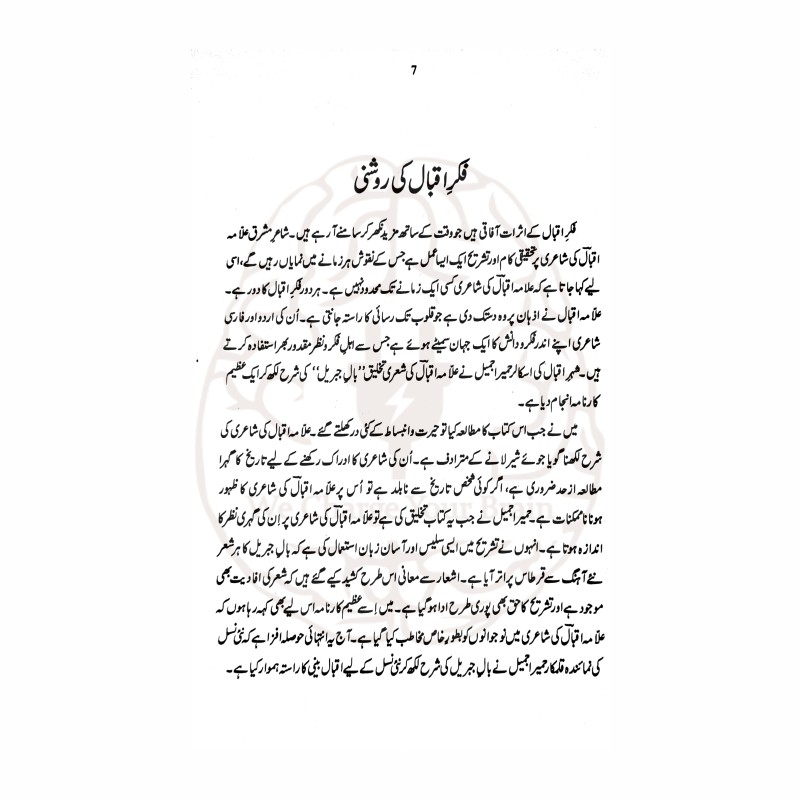 7
فکرِ اقبال کی روشنی
فکرِ اقبال کے اثرات آفاقی ہیں جو وقت کے ساتھ مزید نکھر کر سامنے آ رہے ہیں۔ شاعرِ مشرق علامہ
اقبالؔ کی شاعری پر تحقیقی کام اور تشریح ایک ایسا عمل ہے جس کے نقوش ہر زمانے میں نمایاں رہیں گے، اسی
لیے کہا جاتا ہے کہ علامہ اقبالؔ کی شاعری کسی ایک زمانے تک محدود نہیں ہے۔ ہر دور فکرِ اقبال کا دور ہے۔
علامہ اقبال نے اذہان پر وہ دستک دی ہے جو قلوب تک رسائی کا راستہ جانتی ہے۔ اُن کی اردو اور فارسی
شاعری اپنے اندر فکر و دانش کا ایک جہان سمیٹے ہوئے ہے جس سے اہلِ فکر و نظر مقدور بھر استفادہ کرتے
ہیں۔ شہرِ اقبال کی اسکالر حمیرا جمیل نے علامہ اقبالؔ کی شعری تخلیق ''بالِ جبریل'' کی شرح لکھ کر ایک عظیم
کارنامہ انجام دیا ہے۔
میں نے جب اس کتاب کا مطالعہ کیا تو حیرت و انبساط کے کئی در کھلتے گئے۔ علامہ اقبالؔ کی شاعری کی
شرح لکھنا گویا جوئے شیر لانے کے مترادف ہے۔ اُن کی شاعری کا ادراک رکھنے کے لیے تاریخ کا گہرا
مطالعہ از حد ضروری ہے، اگر کوئی شخص تاریخ سے نابلد ہے تو اُس پر علامہ اقبالؔ کی شاعری کا ظہور
ہونا ناممکنات ہے۔ حمیرا جمیل نے جب یہ کتاب تخلیق کی ہے تو علامہ اقبالؔ کی شاعری پر اِن کی گہری نظر کا
اندازہ ہوتا ہے۔ انہوں نے تشریح میں ایسی سلیس اور آسان زبان استعمال کی ہے کہ بالِ جبریل کا ہر شعر
نئے آہنگ سے قرطاس پر اتر آیا ہے۔ اشعار سے معانی اس طرح کشید کیے گئے ہیں کہ شعر کی افادیت بھی
موجود ہے اور تشریح کا حق بھی پوری طرح ادا ہو گیا ہے۔ میں اِسے عظیم کارنامہ اس لیے بھی کہہ رہا ہوں کہ
علامہ اقبالؔ کی شاعری میں نوجوانوں کو بطورِ خاص مخاطب کیا گیا ہے۔ آج یہ انتہائی حوصلہ افزا ہے کہ نئی نسل
کی نمائندہ قلمکار حمیرا جمیل نے بالِ جبریل کی شرح لکھ کر نئی نسل کے لیے اقبال بینی کا راستہ ہموار کیا ہے۔